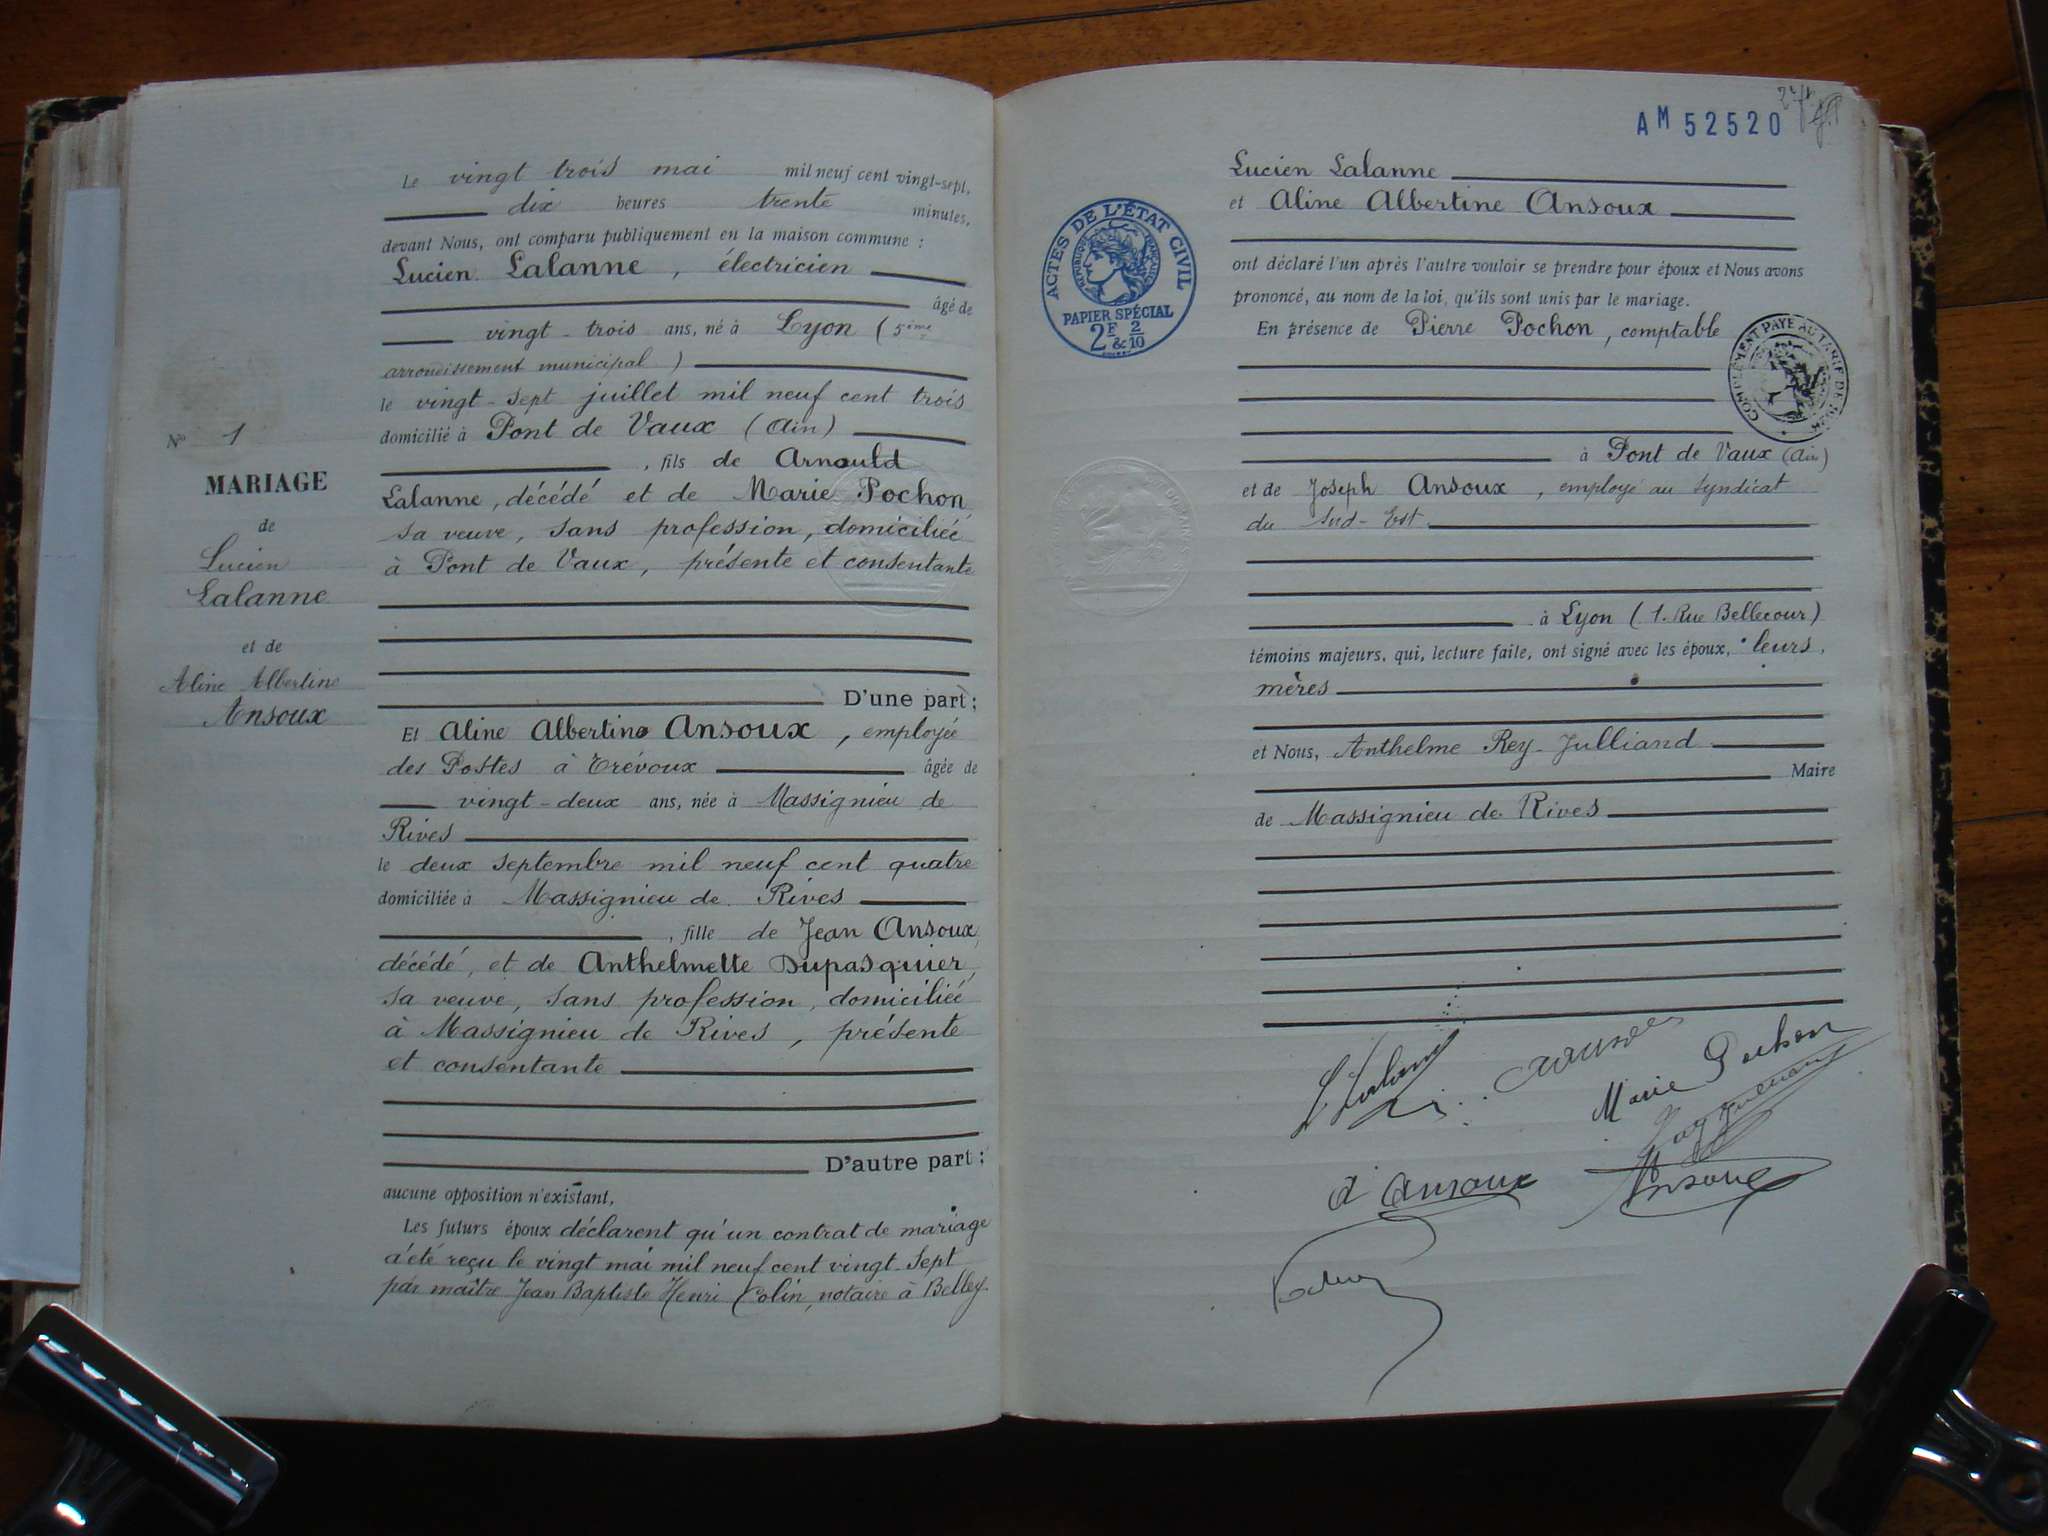 Le vingt trois mai mil neuf cent vingt-sept,
dix heures trente minutes,
devant Nous, ont comparu publiquement en la maison commune :
Lucien Lalanne, électricien
âgé de
vingt-trois ans, né à Lyon (5ème
arrondissement municipal)
le vingt-sept juillet mil neuf cent trois
domicilié à Pont de Vaux (Ain)
, fils de Arnauld
Lalanne, décédé et de Marie Pochon,
sa veuve, sans profession, domiciliée
à Pont de Vaux, présente et consentante
D'une part ;
Et Aline Albertine Ansoux, employée
des Postes à Trévoux âgée de
vingt-deux ans, née à Massignieu de
Rives
le deux septembre mil neuf cent quatre
domiciliée à Massignieu de Rives
, fille de Jean Ansoux,
décédé, et de Anthelmette Dupasquier,
sa veuve, sans profession, domiciliée
à Massignieu de Rives, présente
et consentante
D'autre part ;
aucune opposition n'existant,
Les futurs époux déclarent qu'un contrat de mariage
a été reçu le vingt mai mil neuf cent vingt-sept
par maître Jean Baptiste Henri Colin, notaire à Belley
N° 1
MARIAGE
de
Lucien
Lalanne
et de
Aline Albertine
Ansoux
AM 52520
Lucien Lalanne
et Aline Albertine Ansoux
ont déclaré l'un après l'autre vouloir se prendre pour époux et Nous avons
prononcé, au nom de la loi, qu'ils sont unis par le mariage.
En présence de Pierre Pochon, comptable
à Pont de Vaux (Ain)
et de Joseph Ansoux, employé au Syndicat
du Sud-Est
à Lyon (1. Rue Bellecour)
témoins majeurs, qui, lecture faite, ont signé avec les époux, leurs
mères
et Nous, Anthelme Rey-Julliand
Maire
de Massignieu de Rives
ACTES DE L'ÉTAT CIVIL
RÉPUBLIQUE FRANÇAISE
PAPIER SPÉCIAL
2F & 2/10
COMPLÉMENT PAYÉ AU TARIF DE
Marie Pochon
A Ansoux
Ansoux